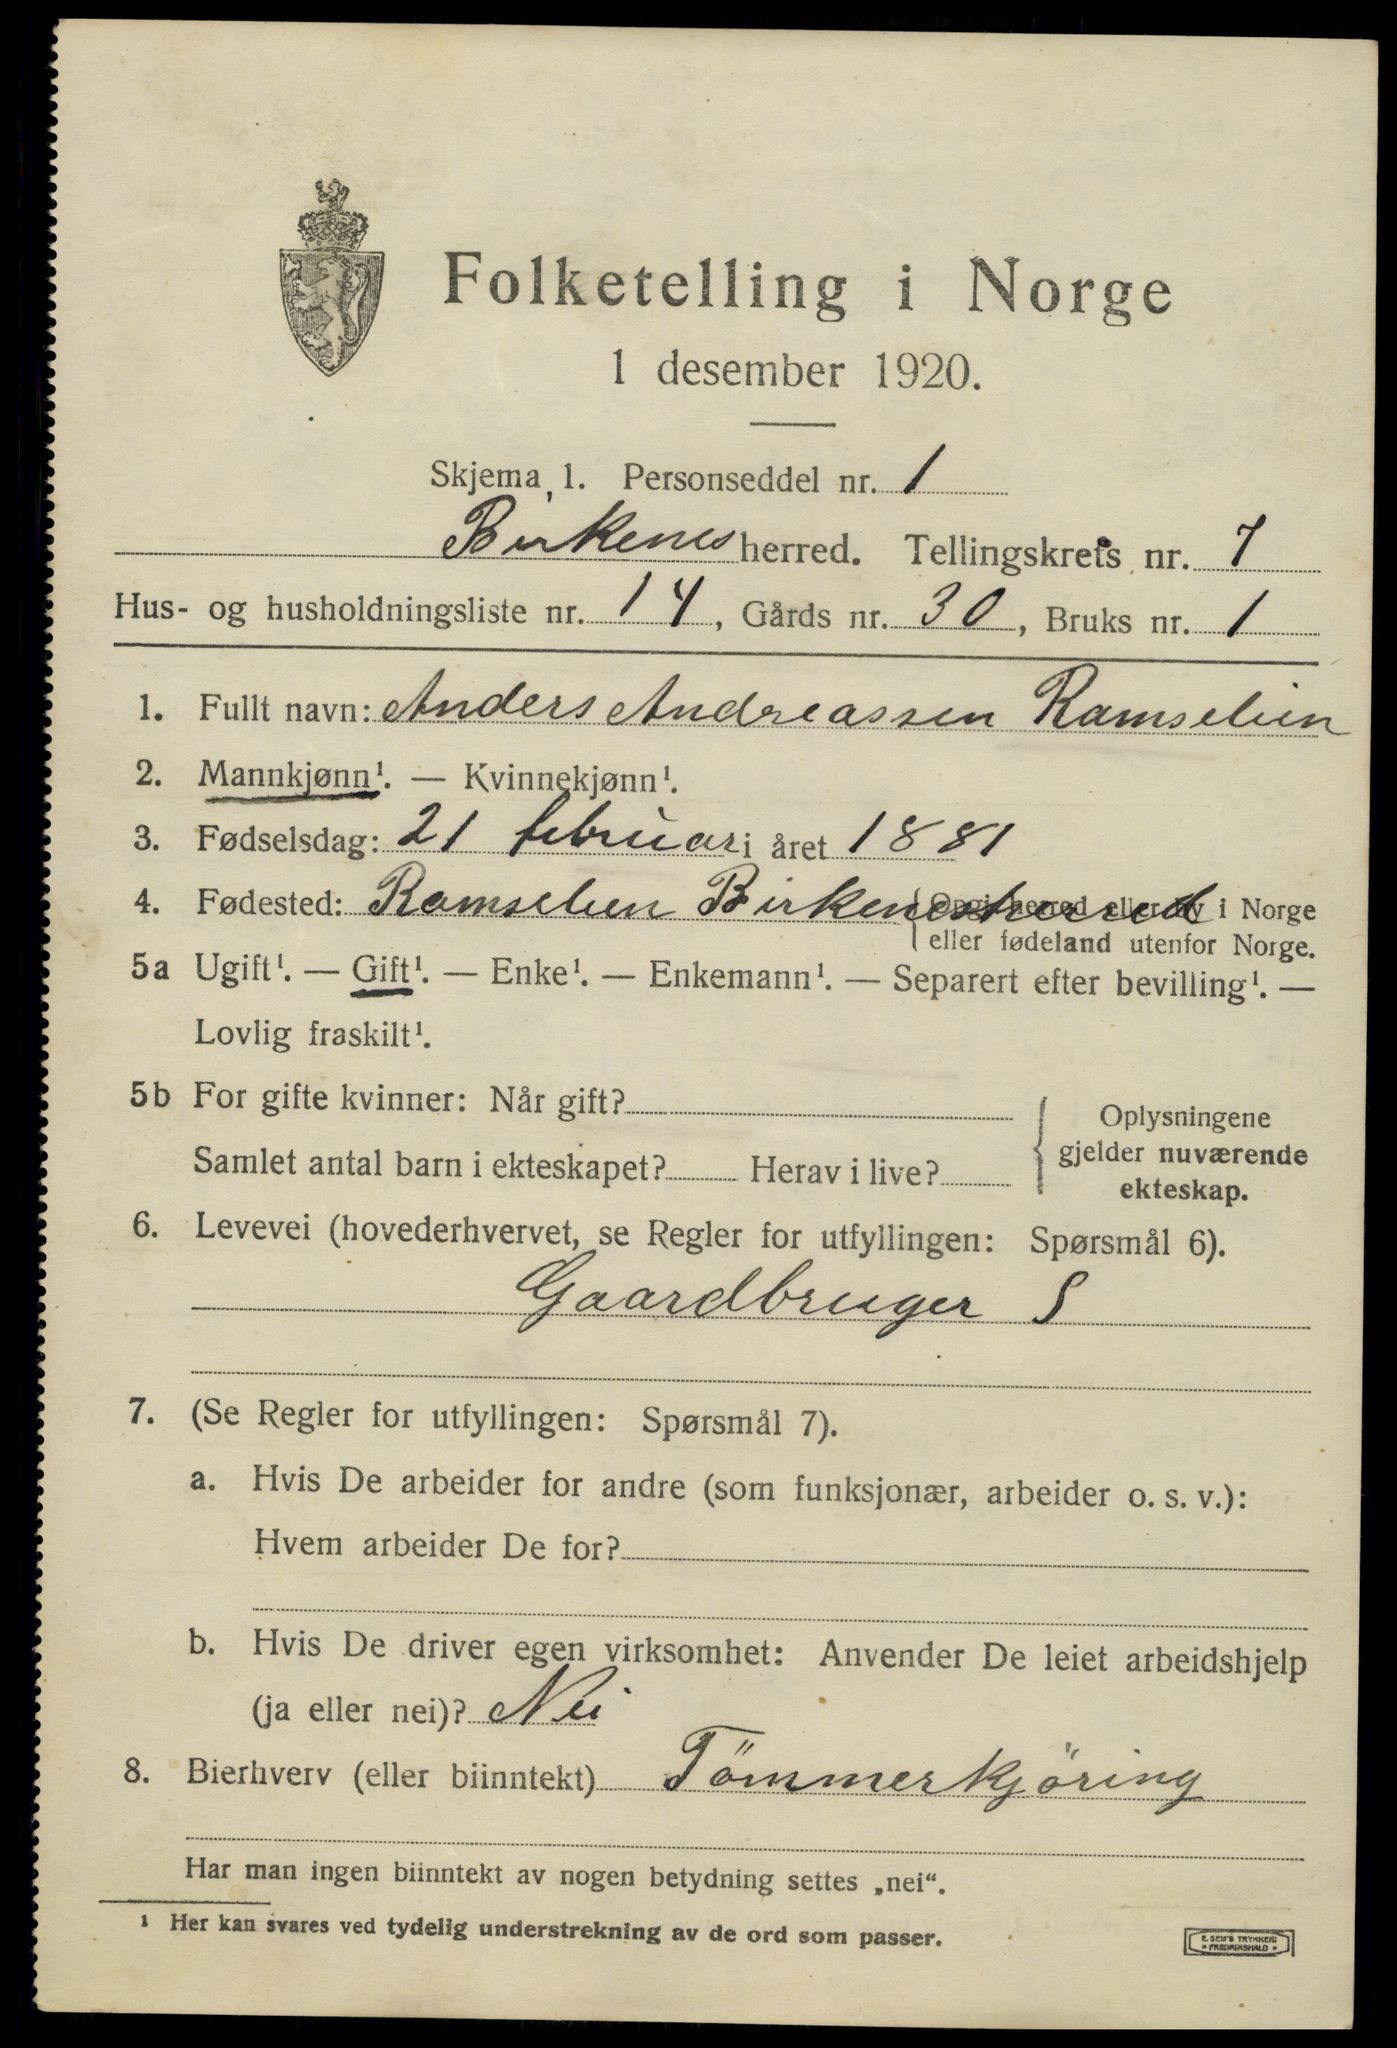 Folketelling i Norge
1 desember 1920.
Skjema 1. Personseddel nr. 1
Birkenes herred. Tellingskrets nr. 7
Hus- og husholdningsliste nr. 14, Gårds nr. 30, Bruks nr. 1
1. Fullt navn: Anders Andreassen Ramselien
2. Mannkjønn¹. — Kvinnekjønn¹.
3. Fødselsdag: 21 februar i året 1881
4. Fødested: Ramselien Birkenesherred {Opgi herred eller by i Norge
eller fødeland utenfor Norge.
5a Ugift¹. — Gift¹. — Enke¹. — Enkemann¹. — Separert efter bevilling¹. —
Lovlig fraskilt¹.
5b For gifte kvinner: Når gift?
Samlet antal barn i ekteskapet? Herav i live?
{ Oplysningene
gjelder nuværende
ekteskap.
6. Levevei (hovederhvervet, se Regler for utfyllingen: Spørsmål 6).
Gaardbruger S
7. (Se Regler for utfyllingen: Spørsmål 7).
a. Hvis De arbeider for andre (som funksjonær, arbeider o. s. v.):
Hvem arbeider De for?
b. Hvis De driver egen virksomhet: Anvender De leiet arbeidshjelp
(ja eller nei)? Nei
8. Bierhverv (eller biinntekt) Tömmerkjöring
Har man ingen biinntekt av nogen betydning settes „nei“.
¹ Her kan svares ved tydelig understrekning av de ord som passer.
E. SEM'S TRYKKERI
* FREDRIKSHALD *